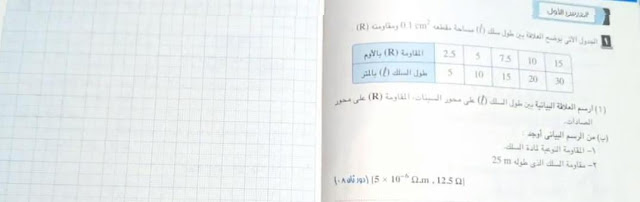 التدريس الأول
١ الجدول الآتى يوضح العلاقة بين طول سلك (l) مساحة مقطعه 0.1 cm² ومقاومته (R)
المقاومة (R) بالأوم 2.5 5 7.5 10 15
طول السلك (l) بالمتر 5 10 15 20 30
(١) ارسم العلاقة البيانية بين طول السلك (l) على محور السينات، المقاومة (R) على محور
الصادات.
(ب) من الرسم البيانى أوجد :
١- المقاومة النوعية لمادة السلك.
٢- مقاومة السلك الذى طوله 25 m
(دور ثان ٠٨) [5 × 10⁻⁶ Ω.m , 12.5 Ω]